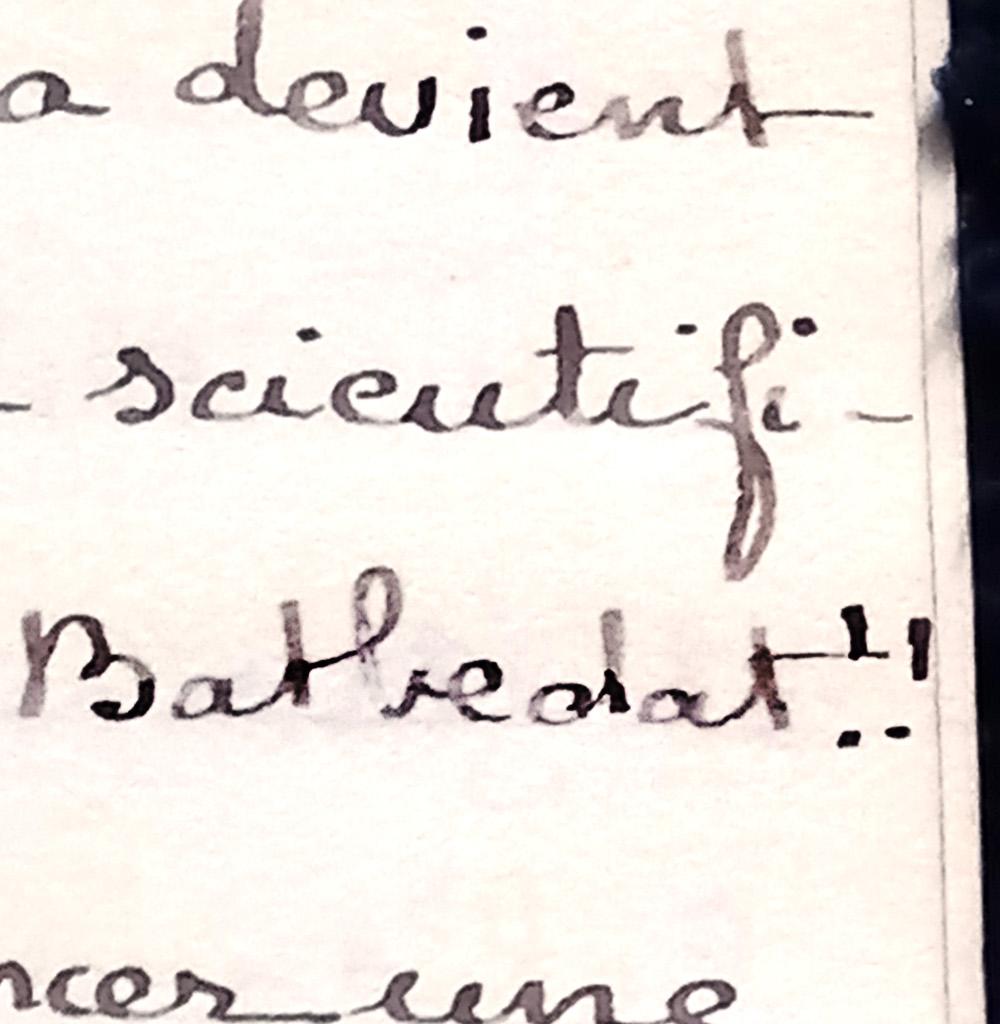 a devient
- scientifi-
Bathedat!!
ncer une